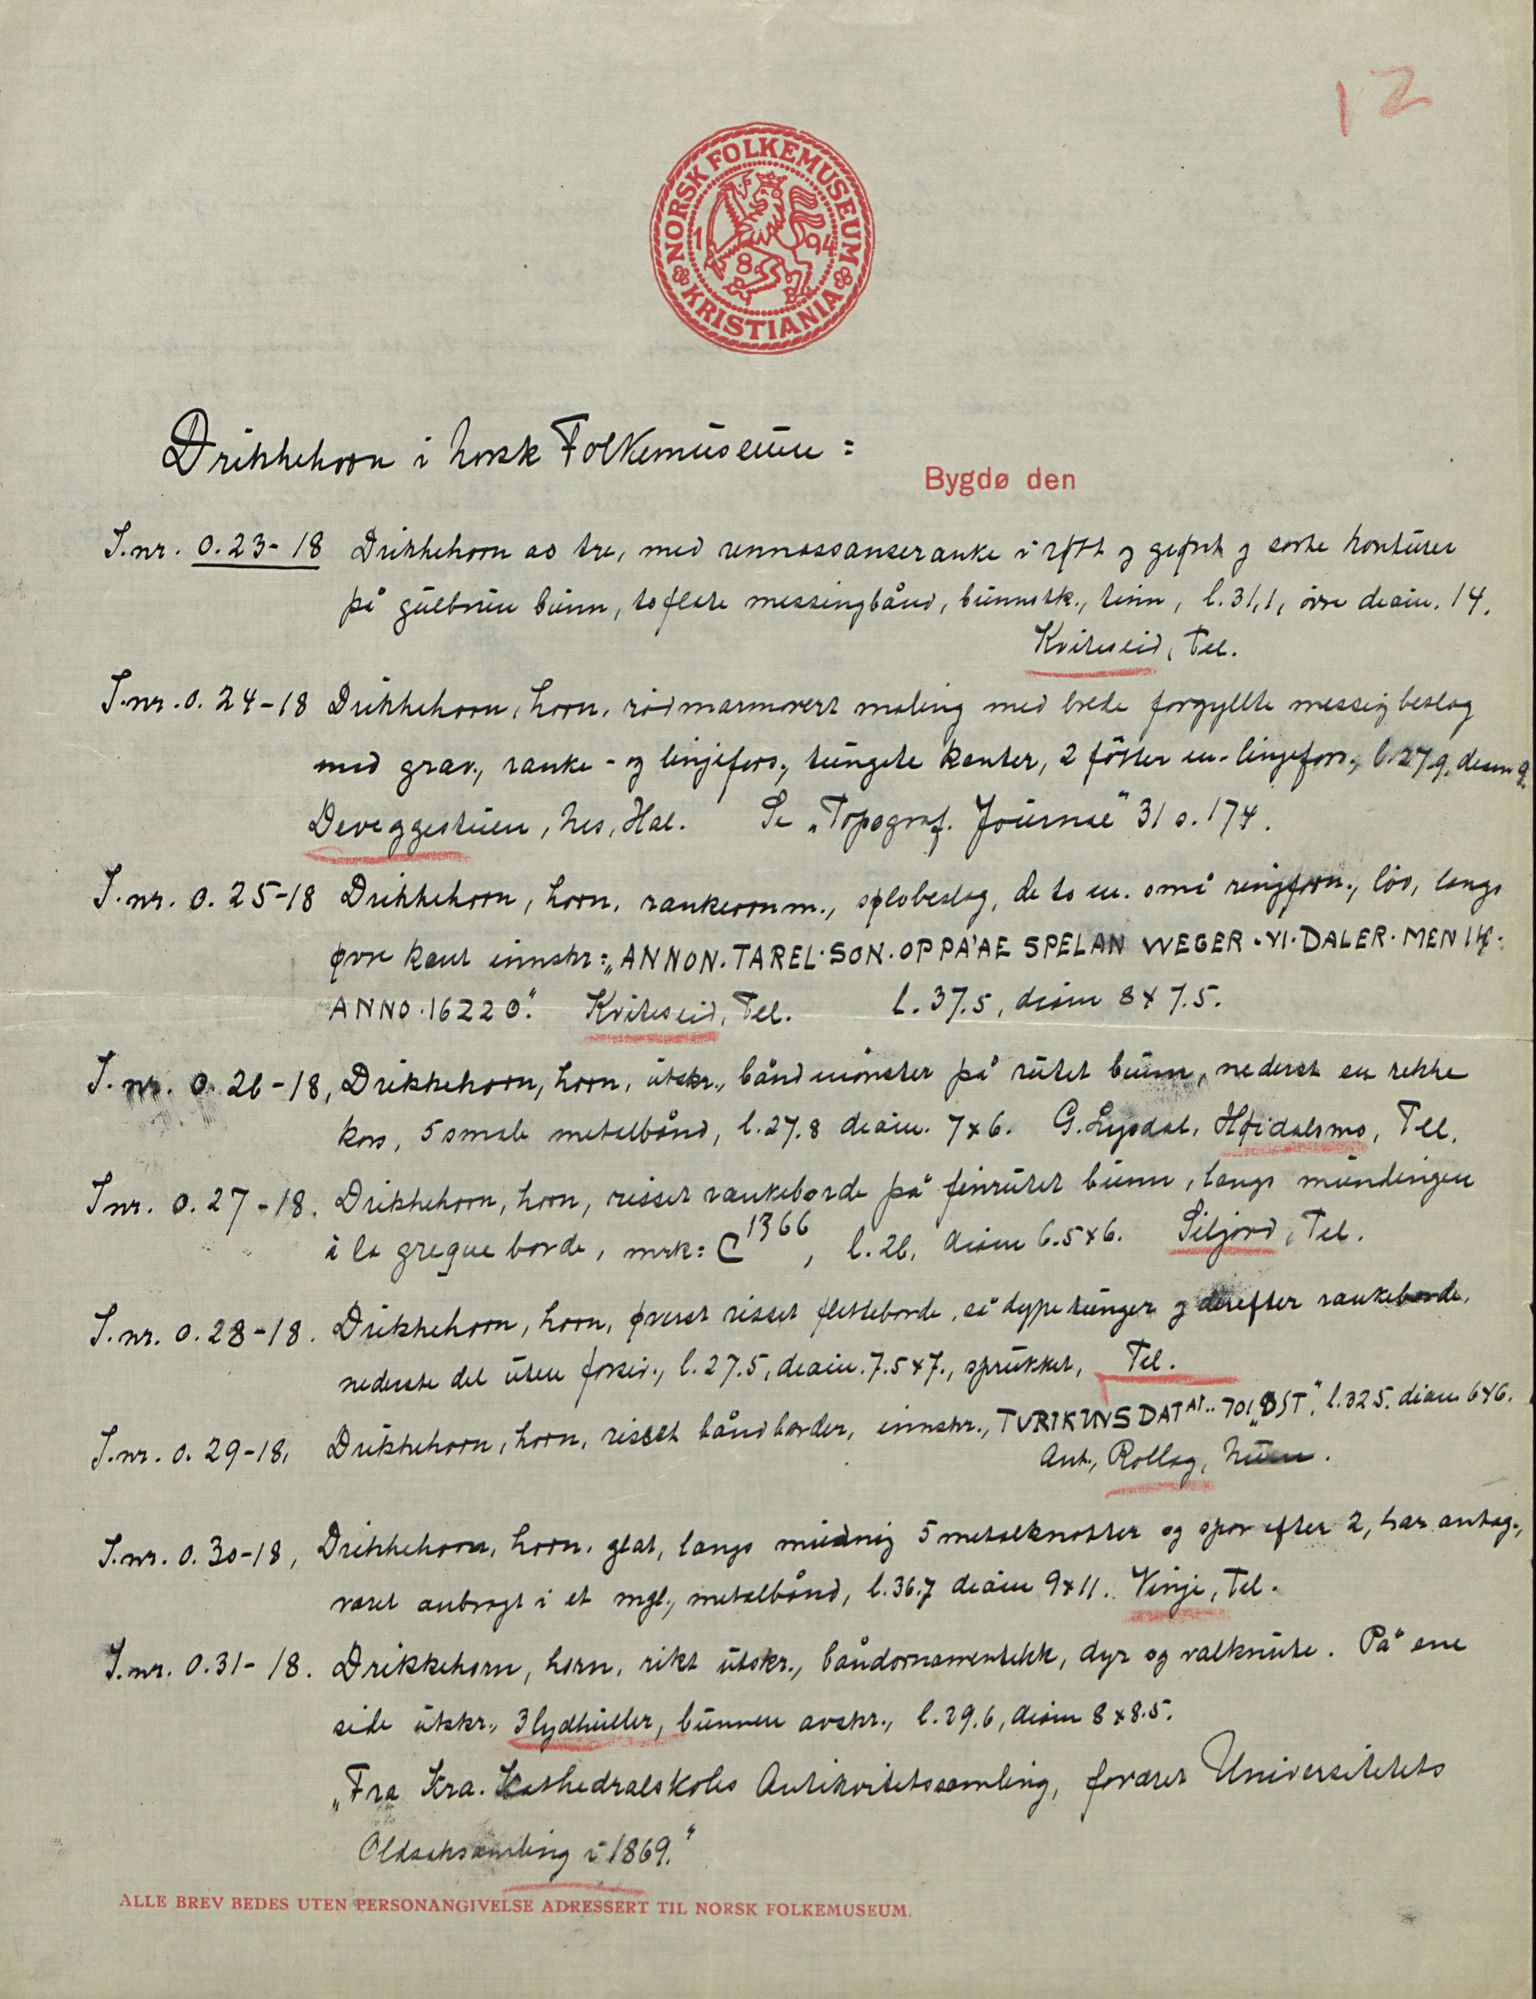 12
NORSK FOLKEMUSEUM
1894
KRISTIANIA
Drikkehorn i Norsk Folkemuseum:
Bygdø den
I.nr. O.23-18 Drikkehorn av tre, med rennessanseranke i rødt og grønt og sorte konturer
på gulbrun bunn, to flate messingbånd, bunnstk., tinn, l.31,1, øvre diam. 14.
Kviteseid, Tel.
I.nr. O.24-18 Drikkehorn, horn, rødmarmorert maling med brede forgyllte messigbeslag
med grav., ranke- og linjefors., tungete kanter, 2 føtter m. linjefors., l.27,9, diam 9.
Deveggestuen, Nes, Hal. Se „Topograf. Journal" 31 s. 174.
I.nr. O. 25-18 Drikkehorn, horn, rankeornm., sølvbeslag, de to m. små ringform., løv, langs
øvre kant innskr: „ANNON. TAREL·SON·OPPA'AE SPELAN WEGER·VI·DALER·MEN 14·
ANNO·16220". Kviteseid, Tel. l. 37.5, diam 8x7.5.
I. nr. O. 26-18, Drikkehorn, horn, utskr., båndmønster på rutet bunn, nederst en rekke
kors, 5 smale metalbånd, l.27.8 diam. 7x6. G. Lysdal, Høidalsmo, Tel.
I nr. O. 27-18. Drikkehorn, horn, risset rankeborde på finrutet bunn, langs mundingen
à la greque borde, mrk: C 1366, l. 26, diam 6.5x6. Siljord, Tel.
I.nr. O. 28-18. Drikkehorn, horn, øverst risset fletteborde, så dype tunger og derefter rankeborde,
nederste del uten forsir., l.27.5, diam. 7.5x7., sprukket, Tel.
I.nr. O. 29-18, Drikkehorn, horn, risset båndborder, innskr., TVRIKINSDATAT.. 701 „ØST", l.32.5. diam 6x6.
Ant., Rollag, Num.
I.nr. O. 30-18, Drikkehorn, horn, glat, langs mundnig 5 metalknotter og spor efter 2, har antag.,
været anbragt i et mgl., metalbånd, l.36.7 diam 9x11. Vinje, Tel.
I.nr. O.31-18. Drikkehorn, horn, rikt utskr., båndornamentikk, dyr og valknute. På ene
side utskr., 3 lydhuller, bunnen avskr., l.29.6, diam 8x8.5.
„Fra Kra. Kathedralskoles Antikvitetssamling, foræret Universitetets
Oldsaksamling i 1869."
ALLE BREV BEDES UTEN PERSONANGIVELSE ADRESSERT TIL NORSK FOLKEMUSEUM.